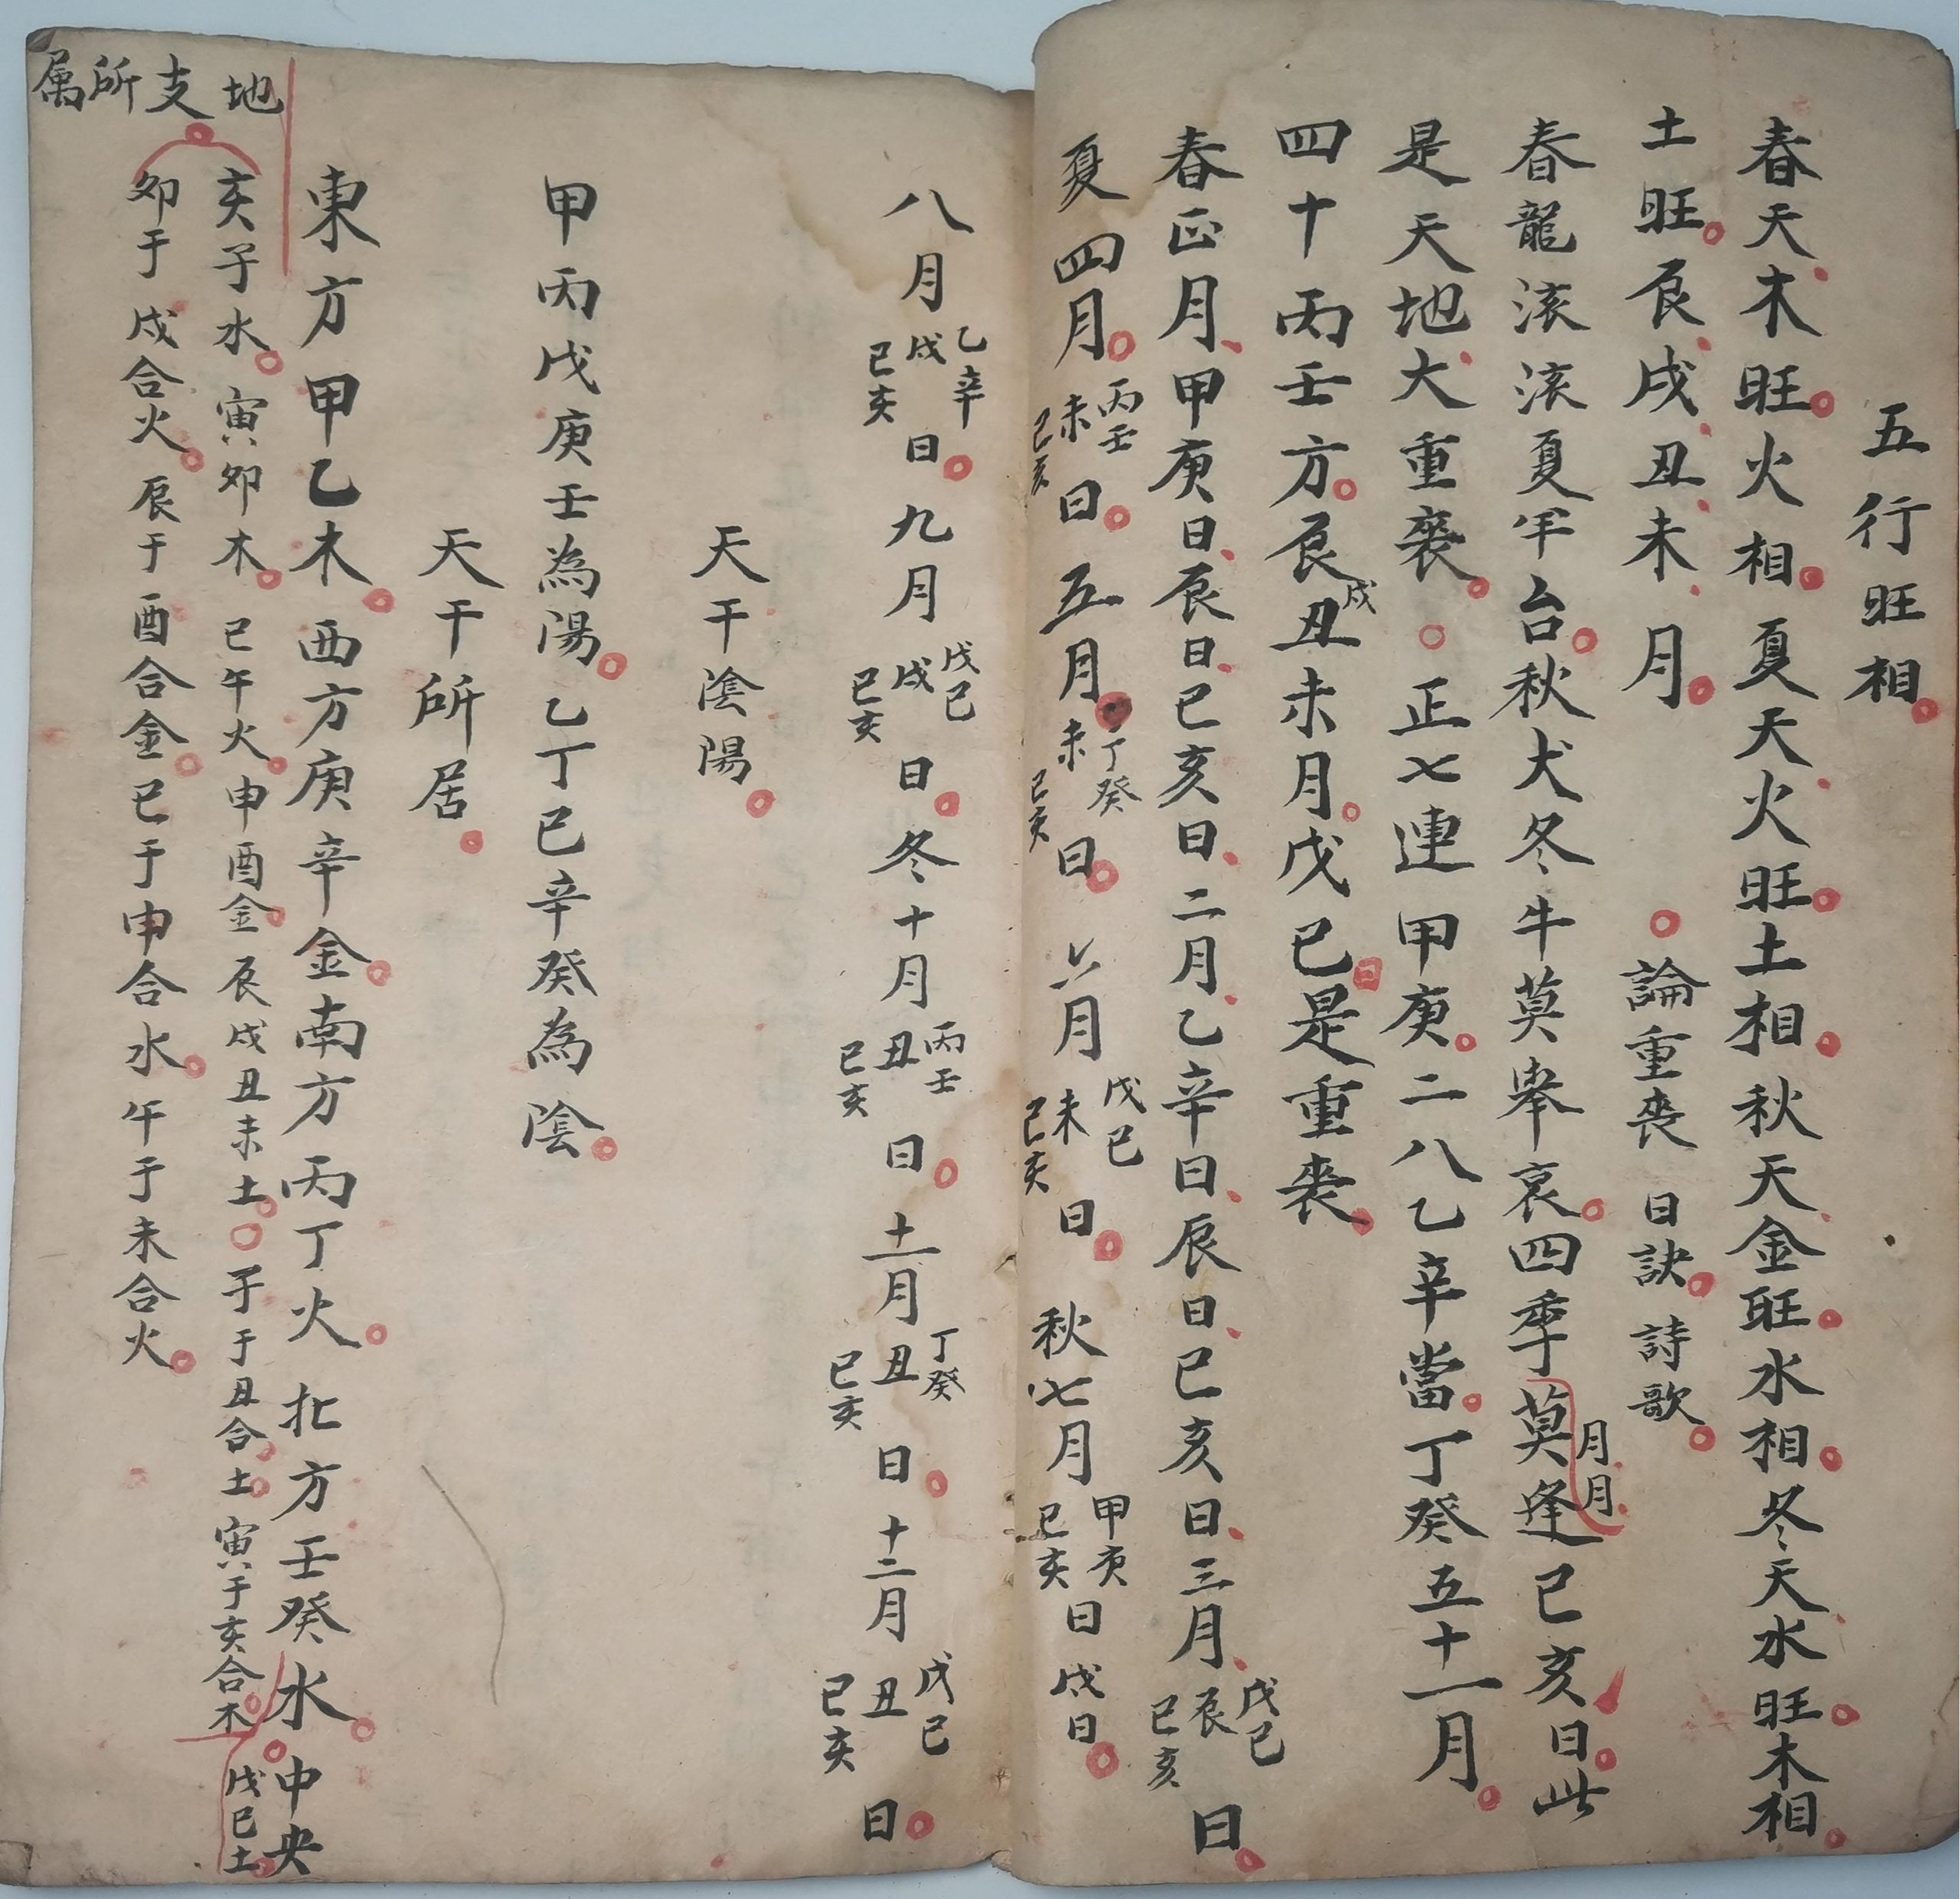 五行旺相
春天木旺火相夏天火旺土相秋天金旺水相冬天水旺木相
土旺辰戌丑未月 論重喪日訣詩歌
春龍滚滚夏羊台秋犬冬牛莫舉哀四季莫逢巳亥日此
月月
是天地大重喪 正七連甲庚二八乙辛當丁癸五十一月
四十丙壬方辰丑未月戊己是重喪
戌
日
春正月甲庚日辰日巳亥日二月乙辛日辰日巳亥日三月戊己辰巳亥日
夏四月丙壬未巳亥日五月丁癸未巳亥日六月戊己未巳亥日秋七月甲庚巳亥日戌日
八月乙辛戌巳亥日九月戊己戌巳亥日冬十月丙壬丑巳亥日十一月丁癸丑巳亥日十二月戊己丑巳亥日
天干陰陽
甲丙戊庚壬為陽乙丁己辛癸為陰
天干所居
東方甲乙木西方庚辛金南方丙丁火北方壬癸水中央
戊己土
地支所属
亥子水寅卯木巳午火申酉金辰戌丑未土 子于丑合土寅于亥合木
卯于戌合火辰于酉合金巳于申合水午于未合火